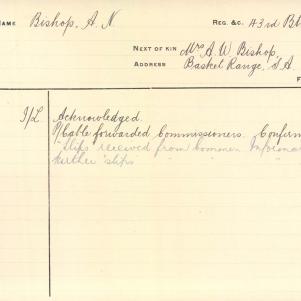 NAME Bishop, A. N REG. &C. 43rd Bt
NEXT OF KIN Mrs A. W Bishop,
ADDRESS Basket Range, S.A
F
I/L Acknowledged.
Cable forwarded Commissioners. Confirm
Slips received from Common
further slips " " "